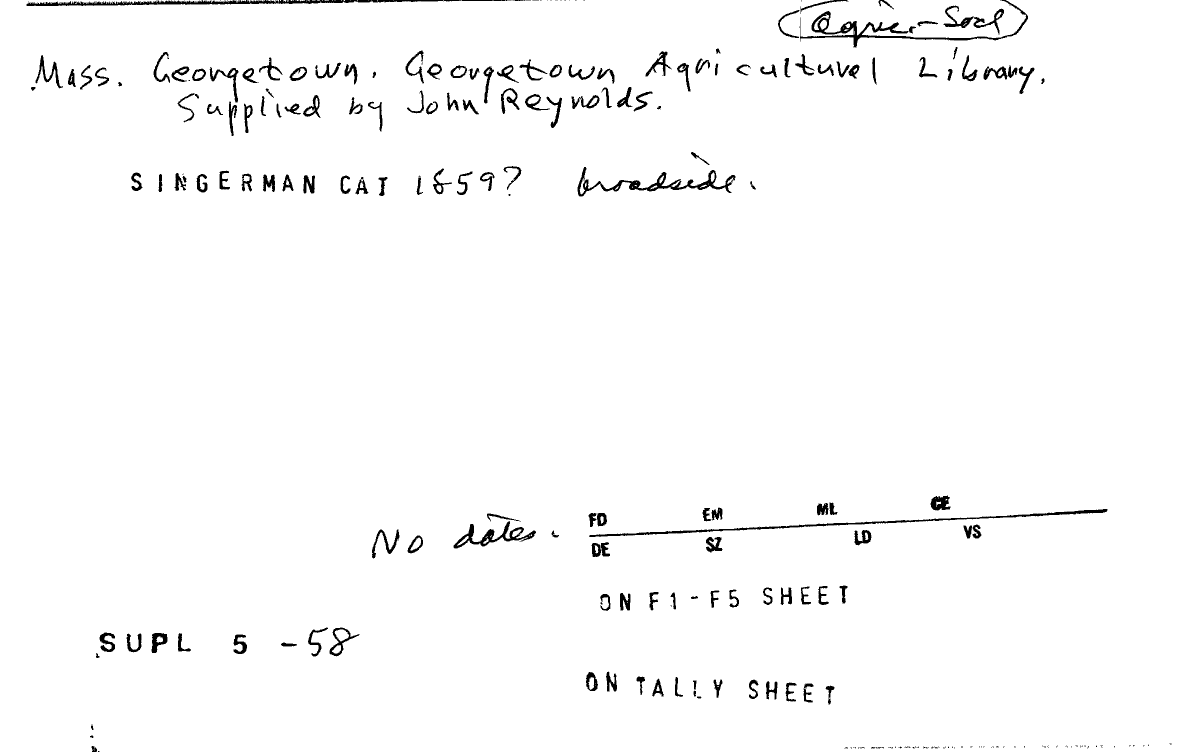 Agric.-Socl
Mass. Georgetown. Georgetown Agricultural Library.
Supplied by John Reynolds.
SINGERMAN CAT 1859? broadside.
No dates.
FD EM ML CE
DE SZ LD VS
ON F1-F5 SHEET
SUPL 5 -58
ON TALLY SHEET